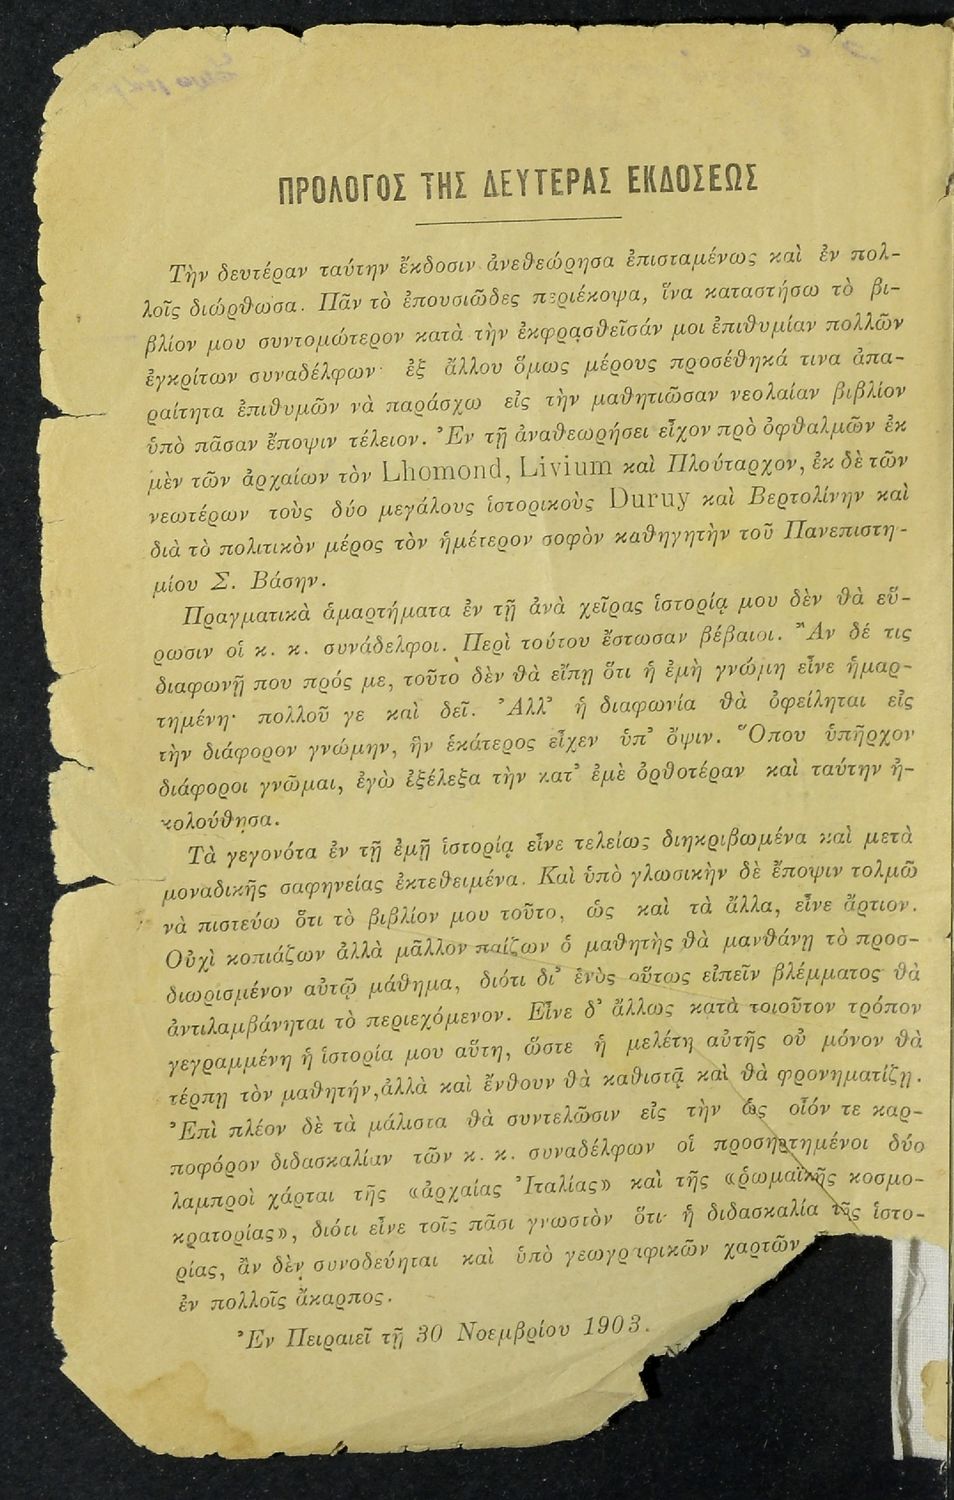 ΠΡΟΛΟΓΟΣ ΤΗΣ ΔΕΥΤΕΡΑΣ ΕΚΔΟΣΕΩΣ
Τὴν δευτέραν ταύτην ἔκδοσιν ἀνεθεώρησα ἐπισταμένως καὶ ἐν πολ-
λοῖς διώρθωσα. Πᾶν τὸ ἐπουσιῶδες περιέκοψα, ἵνα καταστήσω τὸ βι-
βλίον μου συντομώτερον κατὰ τὴν ἐκφρασθεῖσάν μοι ἐπιθυμίαν πολλῶν
ἐγκρίτων συναδέλφων· ἐξ ἄλλου ὅμως μέρους προσέθηκά τινα ἀπα-
ραίτητα ἐπιθυμῶν νὰ παράσχω εἰς τὴν μαθητιῶσαν νεολαίαν βιβλίον
ὑπὸ πᾶσαν ἔποψιν τέλειον. Ἐν τῇ ἀναθεωρήσει εἶχον πρὸ ὀφθαλμῶν ἐκ
μὲν τῶν ἀρχαίων τὸν Lhomond, Livium καὶ Πλούταρχον, ἐκ δὲ τῶν
νεωτέρων τοὺς δύο μεγάλους ἱστορικοὺς Duruy καὶ Βερτολίνην καὶ
διὰ τὸ πολιτικὸν μέρος τὸν ἡμέτερον σοφὸν καθηγητὴν τοῦ Πανεπιστη-
μίου Σ. Βάσην.
Πραγματικὰ ἁμαρτήματα ἐν τῇ ἀνὰ χεῖρας ἱστορίᾳ μου δὲν θὰ εὕ-
ρωσιν οἱ κ. κ. συνάδελφοι. Περὶ τούτου ἔστωσαν βέβαιοι. Ἂν δέ τις
διαφωνῇ που πρός με, τοῦτο δὲν θὰ εἴπῃ ὅτι ἡ ἐμὴ γνώμη εἶνε ἡμαρ-
τημένη· πολλοῦ γε καὶ δεῖ. Ἀλλ' ἡ διαφωνία θὰ ὀφείληται εἰς
τὴν διάφορον γνώμην, ἣν ἑκάτερος εἶχεν ὑπ' ὄψιν. Ὅπου ὑπῆρχον
διάφοροι γνῶμαι, ἐγὼ ἐξέλεξα τὴν κατ' ἐμὲ ὀρθοτέραν καὶ ταύτην ἠ-
κολούθησα.
Τὰ γεγονότα ἐν τῇ ἐμῇ ἱστορίᾳ εἶνε τελείως διηκριβωμένα καὶ μετὰ
μοναδικῆς σαφηνείας ἐκτεθειμένα. Καὶ ὑπὸ γλωσικὴν δὲ ἔποψιν τολμῶ
νὰ πιστεύω ὅτι τὸ βιβλίον μου τοῦτο, ὡς καὶ τὰ ἄλλα, εἶνε ἄρτιον.
Οὐχὶ κοπιάζων ἀλλὰ μᾶλλον παίζων ὁ μαθητὴς θὰ μανθάνῃ τὸ προσ-
διωρισμένον αὐτῷ μάθημα, διότι δι' ἑνὸς οὕτως εἰπεῖν βλέμματος θὰ
ἀντιλαμβάνηται τὸ περιεχόμενον. Εἶνε δ' ἄλλως κατὰ τοιοῦτον τρόπον
γεγραμμένη ἡ ἱστορία μου αὕτη, ὥστε ἡ μελέτη αὐτῆς οὐ μόνον θὰ
τέρπῃ τὸν μαθητήν, ἀλλὰ καὶ ἔνθουν θὰ καθιστᾷ καὶ θὰ φρονηματίζῃ.
Ἐπὶ πλέον δὲ τὰ μάλιστα θὰ συντελῶσιν εἰς τὴν ὡς οἷόν τε καρ-
ποφόρον διδασκαλίαν τῶν κ. κ. συναδέλφων οἱ προσηρτημένοι δύο
λαμπροὶ χάρται τῆς «ἀρχαίας Ἰταλίας» καὶ τῆς «ῥωμαϊκῆς κοσμο-
κρατορίας», διότι εἶνε τοῖς πᾶσι γνωστὸν ὅτι ἡ διδασκαλία τῆς ἱστο-
ρίας, ἂν δὲν συνοδεύηται καὶ ὑπὸ γεωγραφικῶν χαρτῶν
ἐν πολλοῖς ἄκαρπος.
Ἐν Πειραιεῖ τῇ 30 Νοεμβρίου 1903.